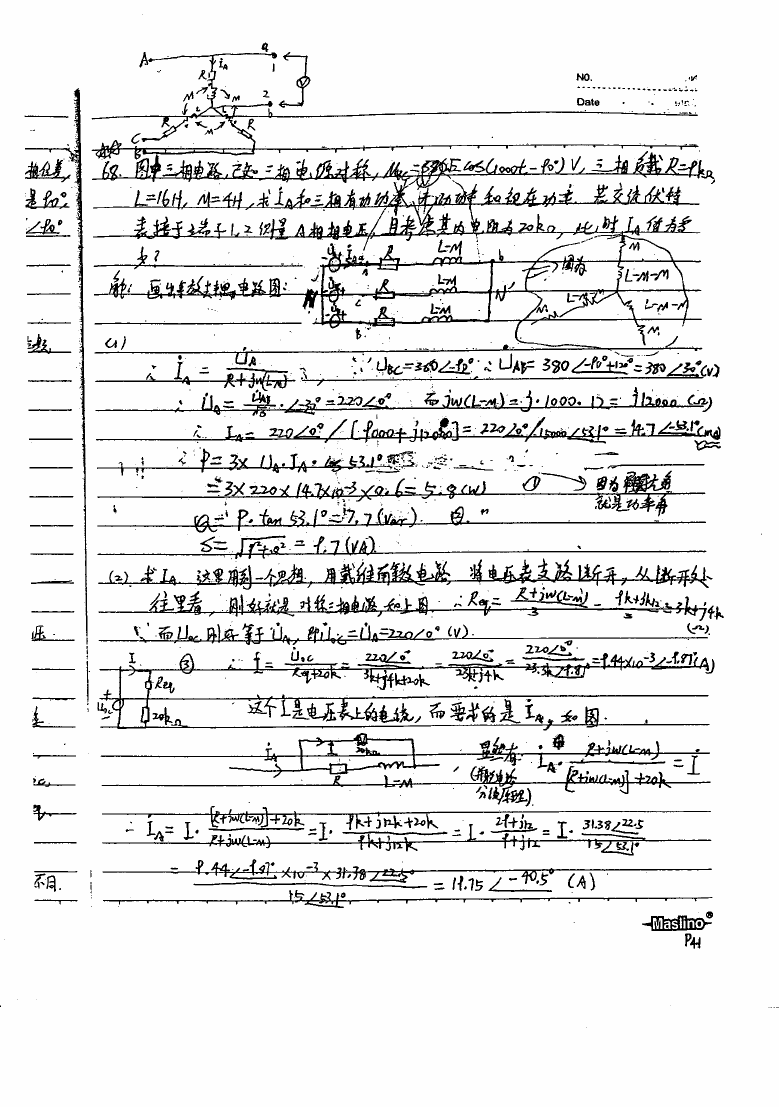 A a 1
i_A
R
M L M
2 b
V
C B R M R
NO.
Date
相位差,
是90°.
∠90°
68. 图中三相电路, 已知三相电源对称, u_BC=380√2 cos(1000t-90°)V, 三相负载R=9kΩ,
L=16H, M=4H, 求İ_A和三相有功功率、无功功率和视在功率. 若交流伏特
表接于端子1,2测量A相相电压, 且考虑其内电阻为20kΩ, 此时I_A值为多
少?
解: 画出等效去耦电路图:
A R L-M b
N C R L-M N'
B R L-M
因为
M
L-M-M
L-M-M
L-M-M
M M
(1)
∴ İ_A = U̇_A / (R+jω(L-M)), ∵ U̇_BC=380∠-90° ∴ U̇_AB=380∠-90°+120°=380∠30°(V)
∴ U̇_A = U̇_AB/√3 · ∠-30°=220∠0° 而jω(L-M)=j·1000·12=j12000 (Ω)
∴ İ_A= 220∠0° / [9000+j12000]=220∠0°/15000∠53.1°=14.7∠-53.1°(mA)
∴ P=3× U_A·I_A·cos53.1°
=3×220×14.7×10⁻³×0.6=5.8(W) ① 因为阻抗角
就是功率角
Q=P·tan53.1°=7.7(Var).
S=√(P²+Q²) = 9.7(VA)
(2) 求İ_A 这里用到一个思想, 用戴维南等效电路 将电压表支路断开, 从断开处
往里看, 刚好就是对称三相电路, 如上图. ∴ Req= (R+jω(L-M))/3 = (9k+j12k)/3=3k+j4k
(Ω).
而U̇oc刚好等于U̇_A, 即U̇oc=U̇_A=220∠0°(V).
I Req U̇oc 20kΩ ③ ∴ İ= U̇oc/(Req+20k) = 220∠0°/(3k+j4k+20k) = 220∠0°/(23k+j4k) = 220∠0°/(23.3k∠9.87°)=9.44×10⁻³∠-9.87°(A)
这个İ是电压表上的电流, 而要求的是İ_A, 如图.
İ_A I 20kΩ R L-M
显然有 İ_A · (R+jω(L-M))/([R+jω(L-M)]+20k) = İ
(并联电路
分流原理)
∴ İ_A= İ · ([R+jω(L-M)]+20k)/(R+jω(L-M)) = İ · (9k+j12k+20k)/(9k+j12k) = İ · (29+j12)/(9+j12) = İ · 31.38∠22.5/15∠53.1°
= (9.44∠-9.87°×10⁻³×31.38∠22.5°)/(15∠53.1°) = 19.75∠-40.5° (A)
不同.
Maslino®
P41